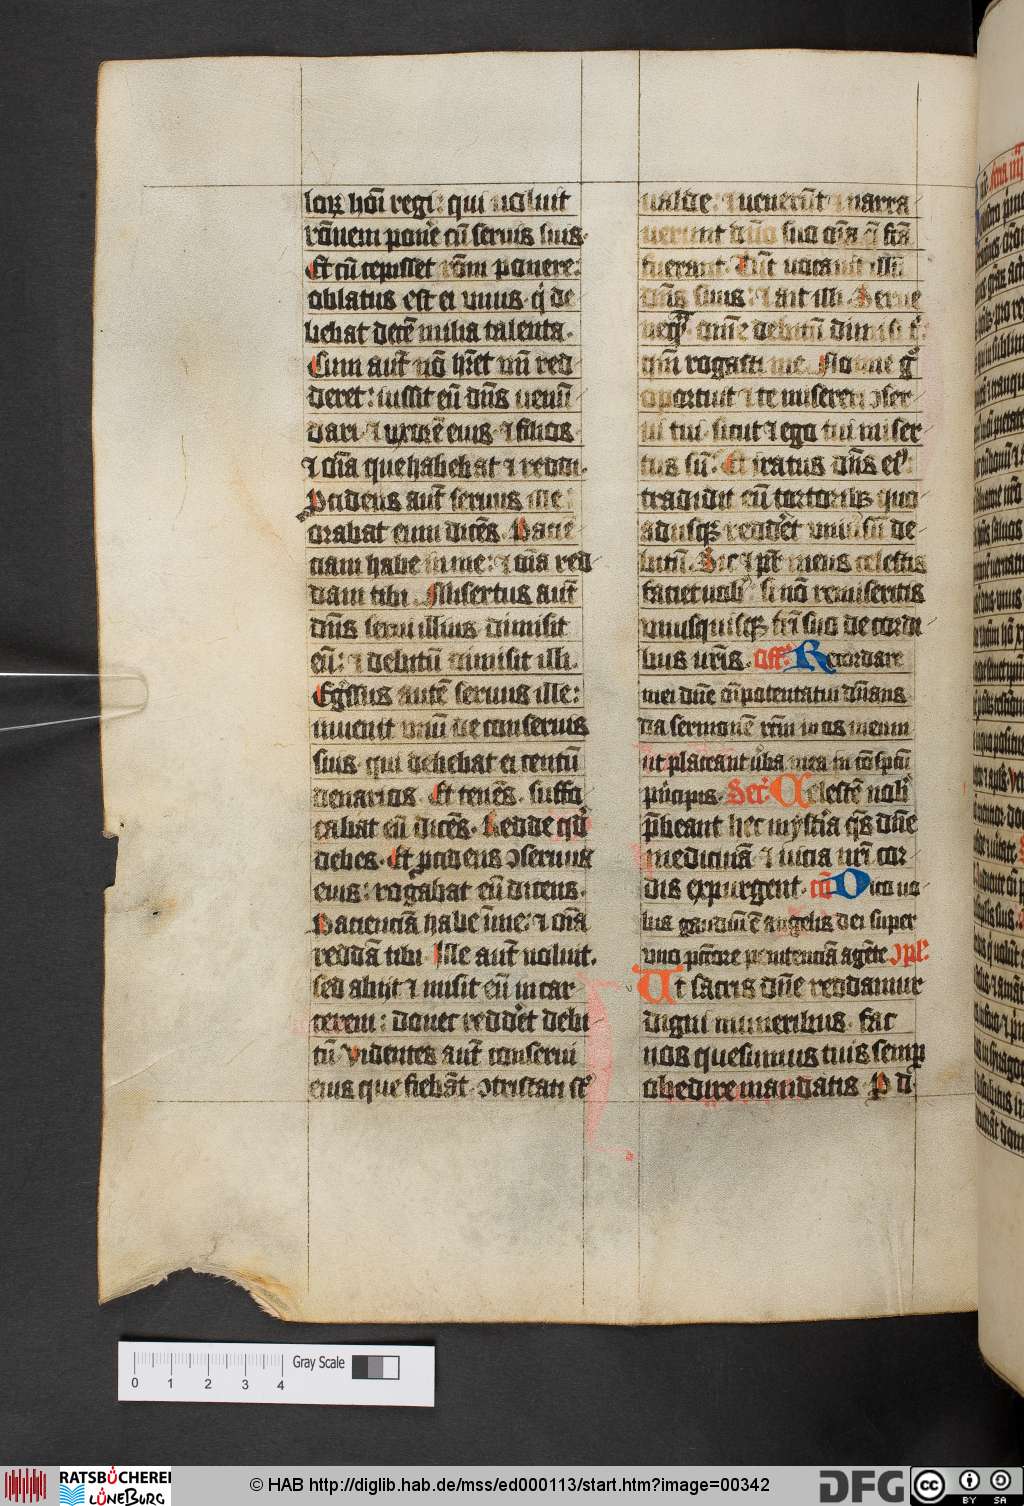 loꝝ hōi regi: qui uoluit
rōnem pone̓ cū seruis suis.
Et cū cepisset rōm ponere:
oblatus est ei unus. q̇ de
bebat decē milia talenta.
Cum aut̄ nō hr̄et vn̄ red
deret: iussit eū dn̄s uenū
dari. ⁊ uxorē eius. ⁊ filios.
⁊ oīa que habebat ⁊ reddi.
Pcidens aut̄ seruus ille
orabat eum dicēs. Pacie
ciam habe in me: ⁊ oīa red
dam tibi. Misertus aut̄
dn̄s serui illius dimisit
eū: ⁊ debitū dimisit illi.
Egr̄ssus autē seruus ille:
inuenit vnū de conseruis
suis. qui debebat ei centū
denarios. Et tenēs. suffo
cabat eū dicēs. Redde qd̄
debes. Et pcidens ↄseruus
eius: rogabat eū dicens.
Pacienciā habe ī me: ⁊ oīa
reddā tibi. Ille aut̄ noluit.
sed abiit ⁊ misit eū in car
cerem: donec redde̓t debi
tū. Videntes aut̄ conserui
eius que fiebāt. ↄtristati st̄
ualde. ⁊ uenerūt ⁊ narra
uerunt dn̄o suo oīa q̄ fcā
fuerant. Tūc uocauit illū
dn̄s suus: ⁊ ait illi. Serue
neqꝫ. omne debitū dimisi t̄:
qm̄ rogasti me. Nonne g̊
oportuit ⁊ te misereri ↄser
ui tui. sicut ⁊ ego tui miser
tus sū. Et iratus dn̄s eiꝰ:
tradidit eū tortoribꝫ quo
adusqꝫ redde̓t vniūsū de
bitū. Sic ⁊ pr̄ meus celestis
faciet uob̄. si nō remiseritis
unusquisqꝫ fr̄i suo de cordi
bus ur̄is. Off. Recordare
mei dn̄e oīpotentatui dn̄ans
da sermonē rc̄m in os meum
ut placeant u̓ba mea in cōspcū
pn̄cipis. Secr̄. Celestē nob̄
p̄beant hec mysťia qs̄ dn̄e
medicinā. ⁊ uicia nr̄i cor
dis expurgent. Cō Dico uo
bis gaudiū ē angelis dei super
vno pcc̄ore penitenciā agēte. ↄpl̄.
Ut sacris dn̄e reddamur
digni muneribus. fac
nos quesumus tuis semp̄
obedire mandatis. P d̄.
0 1 2 3 4 Gray Scale
RATSBÜCHEREI
LÜNEBURG
© HAB http://diglib.hab.de/mss/ed000113/start.htm?image=00342
DFG
cc BY SA